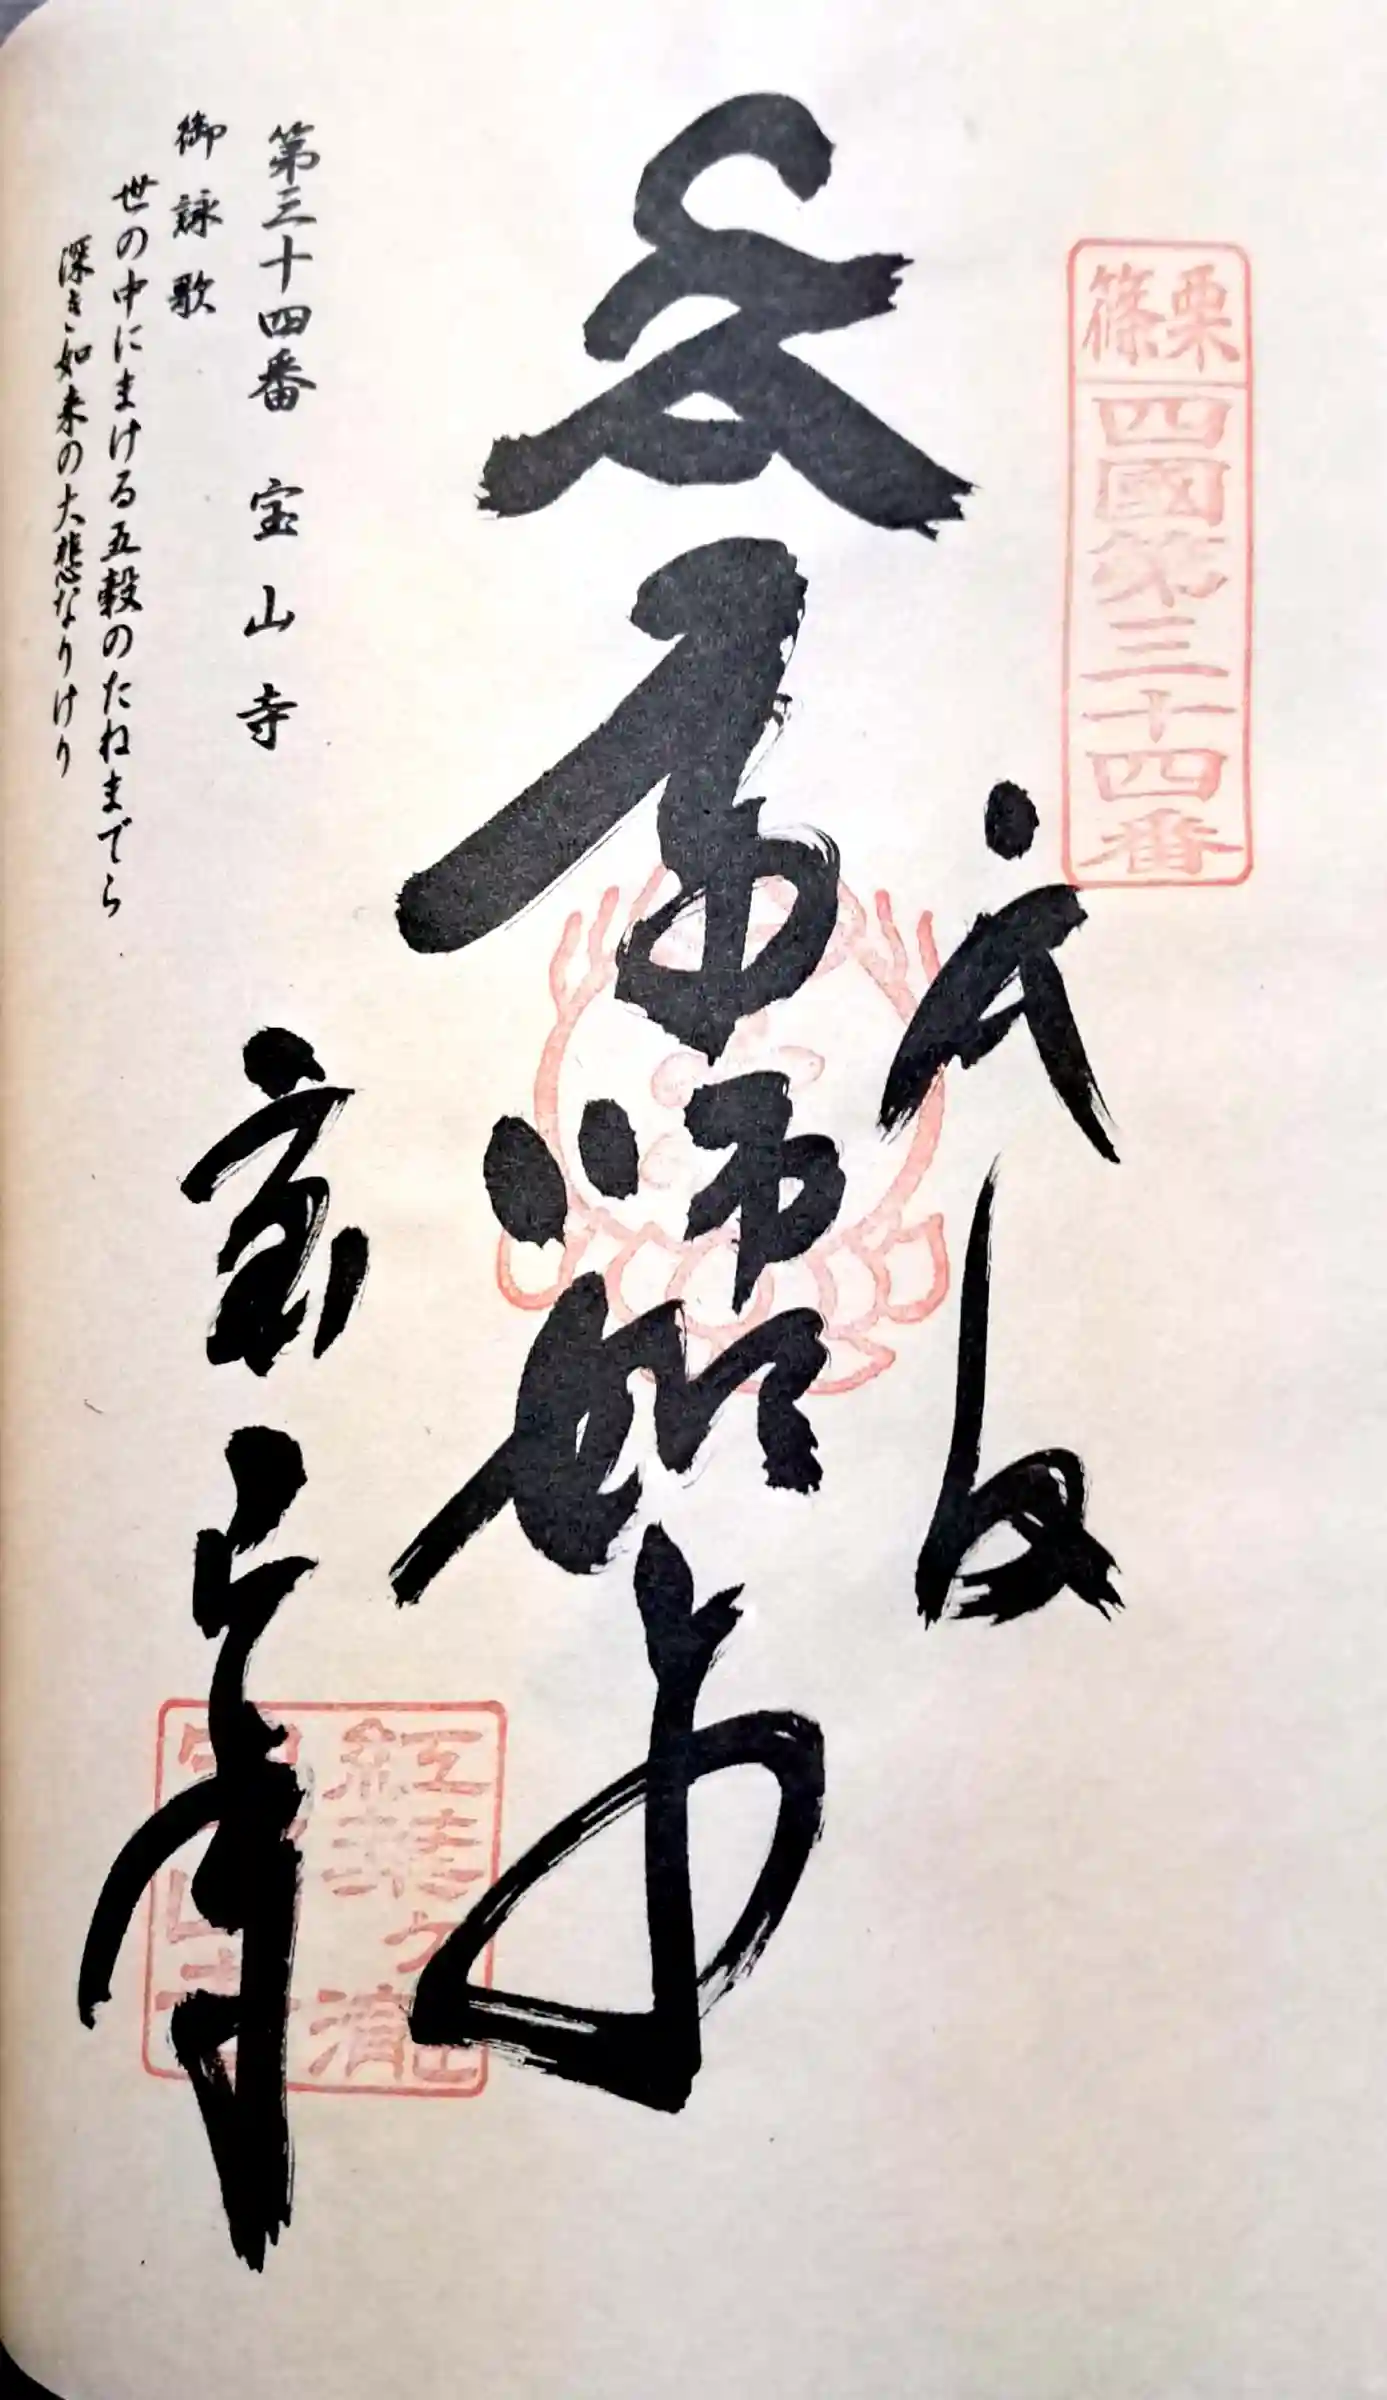 篠栗
四國第三十四番
奉拝
薬師如来
宝山寺
紅葉ヶ滝
宝山寺
第三十四番 宝山寺
御詠歌
世の中にまける五穀のたねまでら
深き如来の大悲なりけり